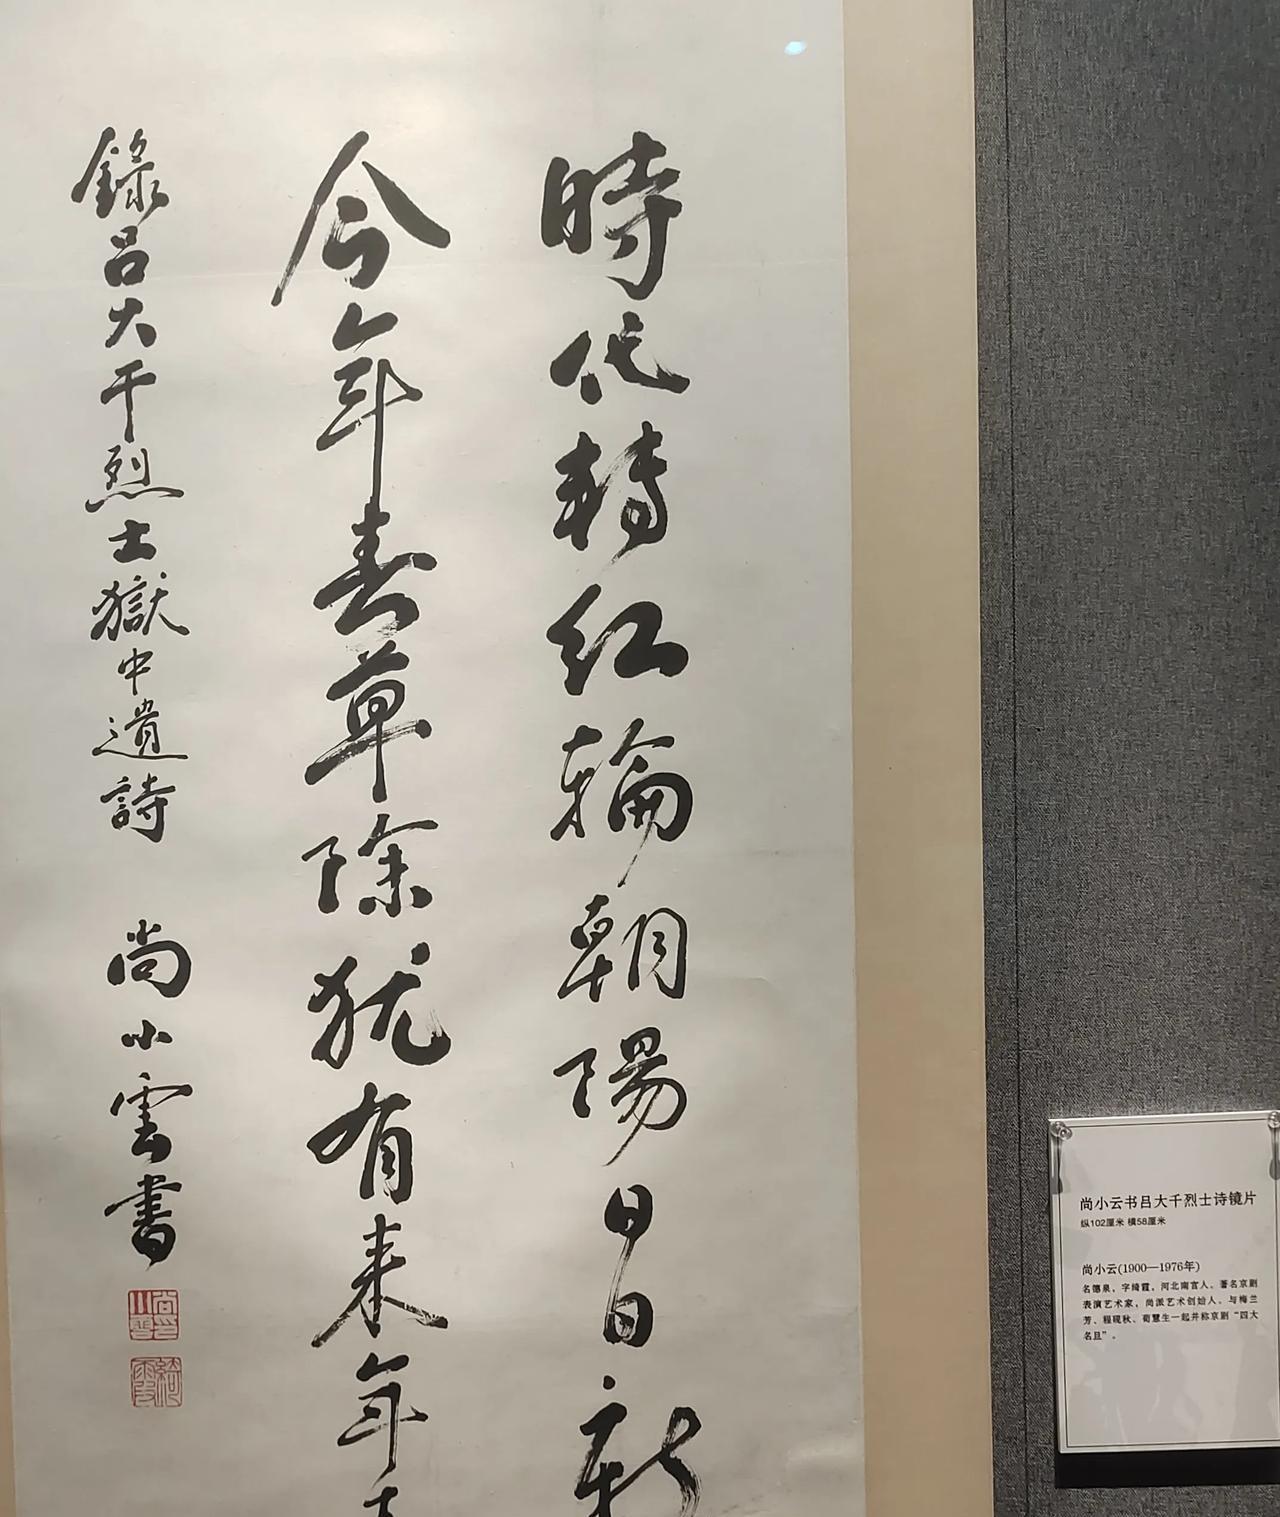 時代轉红輪朝陽日日新
今年春草除犹有来年
錄吕大千烈士獄中遺詩 尚小雲書
尚小云书吕大千烈士诗镜片
纵102厘米 横58厘米
尚小云(1900—1976年)
名德泉，字绮霞，河北南宫人，著名京剧
表演艺术家，尚派艺术创始人，与梅兰
芳、程砚秋、荀慧生一起并称京剧“四大
名旦”。